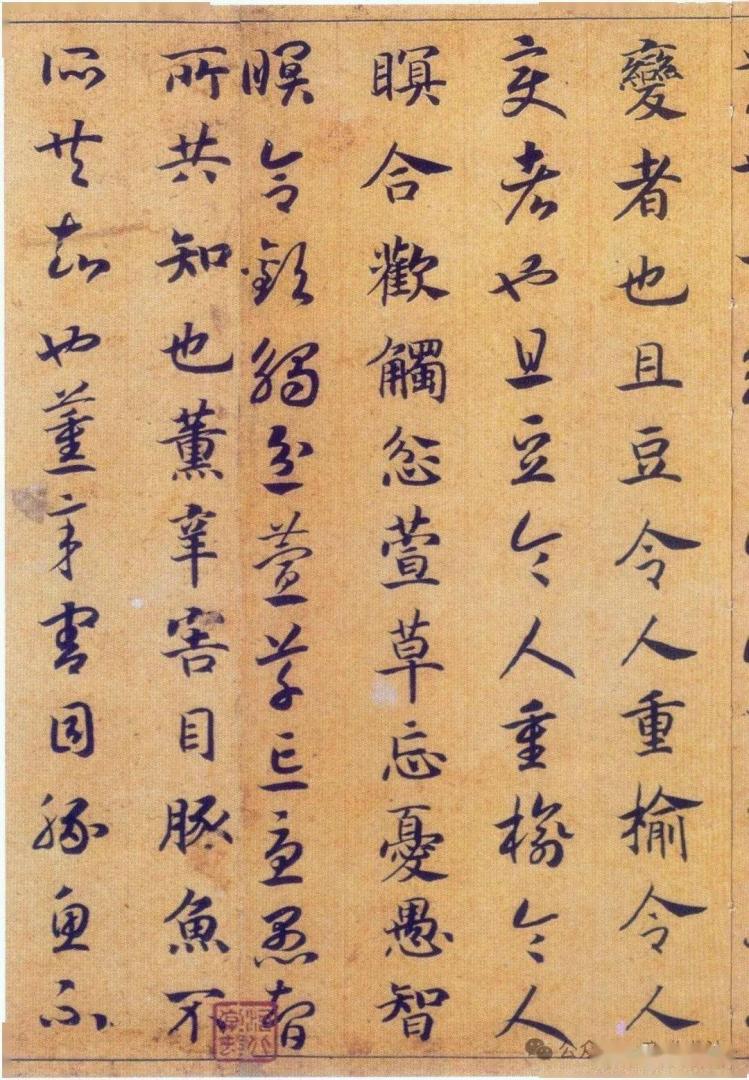 變者也且豆令人重榆令人
変者也且豆令人重榆令人
瞑合歡觸忿萱草忘憂愚智
瞑合歡觸忿萱草忘憂愚智
所共知也薰辛害目豚魚不
所共知也薰辛害目豚魚不
公众